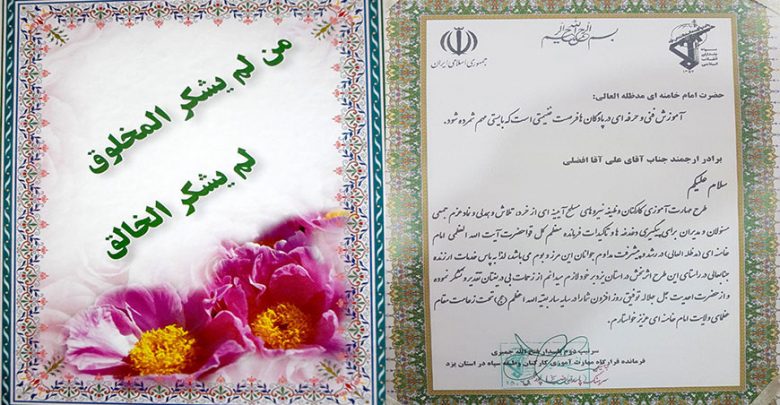 من لم يشكر المخلوق
لم يشكر الخالق
بسم الله الرحمن الرحیم
جمهوری اسلامی ایران
سپاه پاسداران انقلاب اسلامی
حضرت امام خامنه ای مدظله العالی:
آموزش فنی و حرفه ای در پادگان ها فرصت نفیسی است که بایستی مهم شمرده شود.
برادر ارجمند جناب آقای علی آقا افضلی
سلام علیکم
طرح مهارت آموزی کارکنان وظیفه نیروهای مسلح آیینه ای از خرد، تلاش و همدلی و نماد عزم جمعی
مسئولان و مدیران برای پیگیری دغدغه ها و تاکیدات فرمانده معظم کل قوا حضرت آیت الله العظمی امام
خامنه ای (مدظله العالی) در رشد و پیشرفت مداوم جوانان این مرز و بوم می باشد، لذا به پاس خدمات ارزنده
جنابعالی در راستای این طرح اثربخش در استان یزد بر خود لازم میدانم از زحمات بی دریغتان تقدیر و تشکر نموده
و از حضرت احدیت جل جلاله توفیق روز افزون شما را در سایه سار بقیه الله اعظم (عج) تحت زعامت مقام
عظمای ولایت امام خامنه ای عزیز خواستارم.
سرتیپ دوم پاسدار
فرمانده قرارگاه مهارت آموزی کارکنان وظیفه سپاه در استان یزد